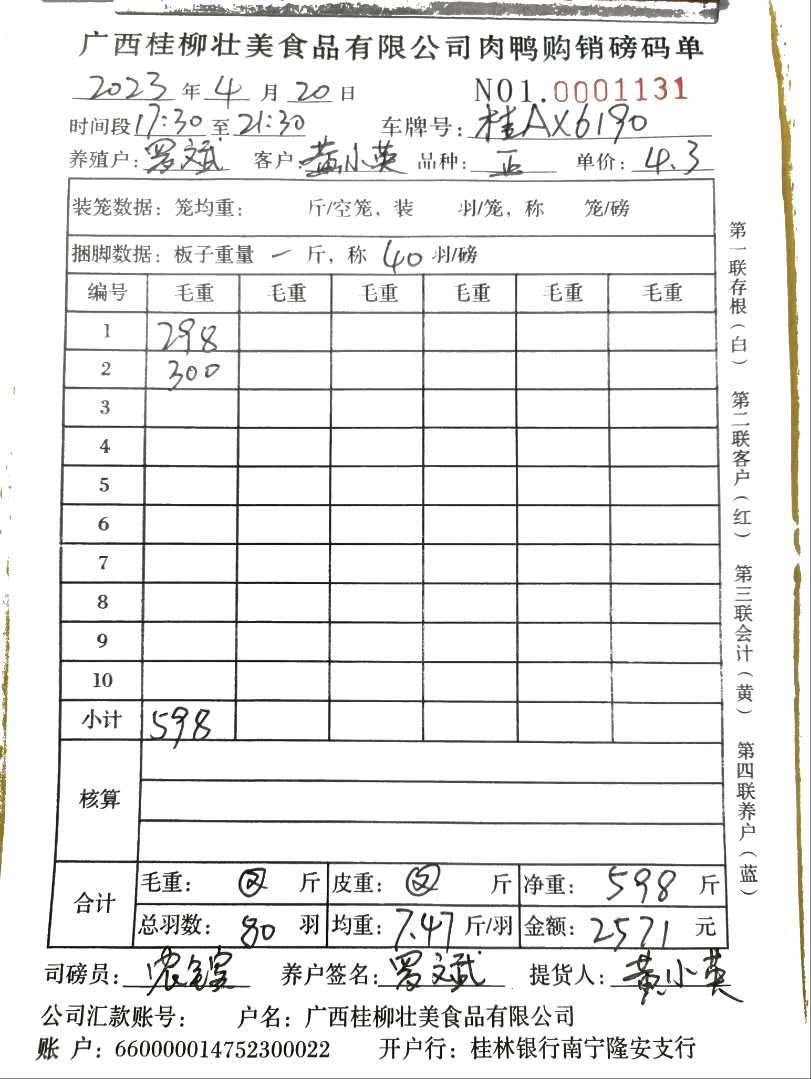 广西桂柳壮美食品有限公司肉鸭购销磅码单
2023 年 4 月 20 日 NO1.0001131
时间段 17:30 至 21:30 车牌号: 桂AX6190
养殖户: 罗文斌 客户: 黄小英 品种: 正 单价: 4.3
装笼数据: 笼均重: 斤/空笼, 装 羽/笼, 称 笼/磅
捆脚数据: 板子重量 一 斤, 称 40 羽/磅
编号 毛重 毛重 毛重 毛重 毛重 毛重
1 298
2 300
3
4
5
6
7
8
9
10
小计 598
核算
合计
毛重: 斤 皮重: 斤 净重: 598 斤
总羽数: 80 羽 均重: 7.47 斤/羽 金额: 2571 元
司磅员: 养户签名: 罗文斌 提货人: 黄小英
公司汇款账号: 户名: 广西桂柳壮美食品有限公司
账 户: 660000014752300022 开户行: 桂林银行南宁隆安支行
第一联存根(白) 第二联客户(红) 第三联会计(黄) 第四联养户(蓝)